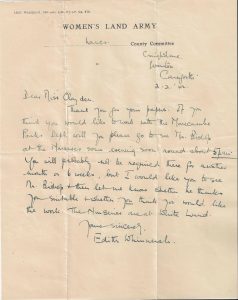 WOMEN'S LAND ARMY
Lancs. County Committee
Carnforth
Dear Miss Clayden
Thank you for your papers. If you
think you would like to work with the Morecambe
Parks Dept. will you please go to see Mr. Bishop
at the Nurseries some evening soon round about 5 p.m.
You will probably not be required there for another
month or 6 weeks, but I would like you to see
Mr. Bishop & then let me know whether he thinks
you suitable & whether you think you would like
the work. The Nurseries are at
Yours sincerely,
Edith